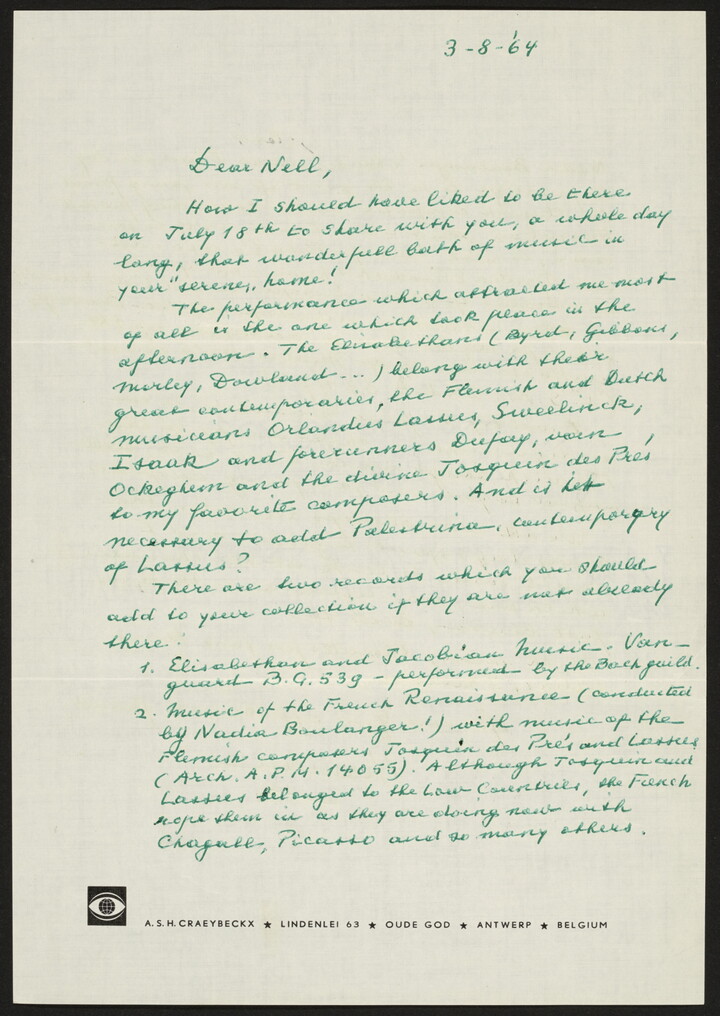 3-8-'64
Dear Nell,
How I should have liked to be there
on July 18th to share with you, a whole day
long, that wonderfull bath of music in
your "serene" home!
The performance which attracted me most
of all is the one which took place in the
afternoon. The Elisabethans (Byrd, Gibbons,
Morley, Dowland ...) belong with their
great contemporaries, the Flemish and Dutch
musicians Orlandus Lassus, Sweelinck,
Isaak and forerunners Dufay, van
Ockeghem and the divine Josquin des Prés
to my favorite composers. And is it
necessary to add Palestrina, contemporary
of Lassus?
There are two records which you should
add to your collection if they are not already
there:
1. Elisabethan and Jacobian Music. Van-
guard B.G. 539 - performed by the Bach guild.
2. Music of the French Renaissance (conducted
by Nadia Boulanger!) with music of the
Flemish composers Josquin des Prés and Lassus
(Arch. A.P.M. 14055). Although Josquin and
Lassus belonged to the Low Countries, the French
rope them in as they are doing now with
Chagall, Picasso and so many others.
A.S.H. CRAEYBECKX ★ LINDENLEI 63 ★ OUDE GOD ★ ANTWERP ★ BELGIUM